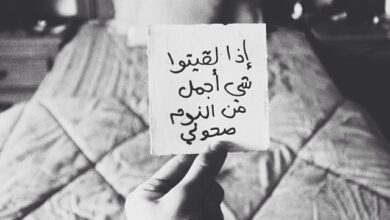 إذا لقيتوا
شي أجمل
من النوم
صحوني